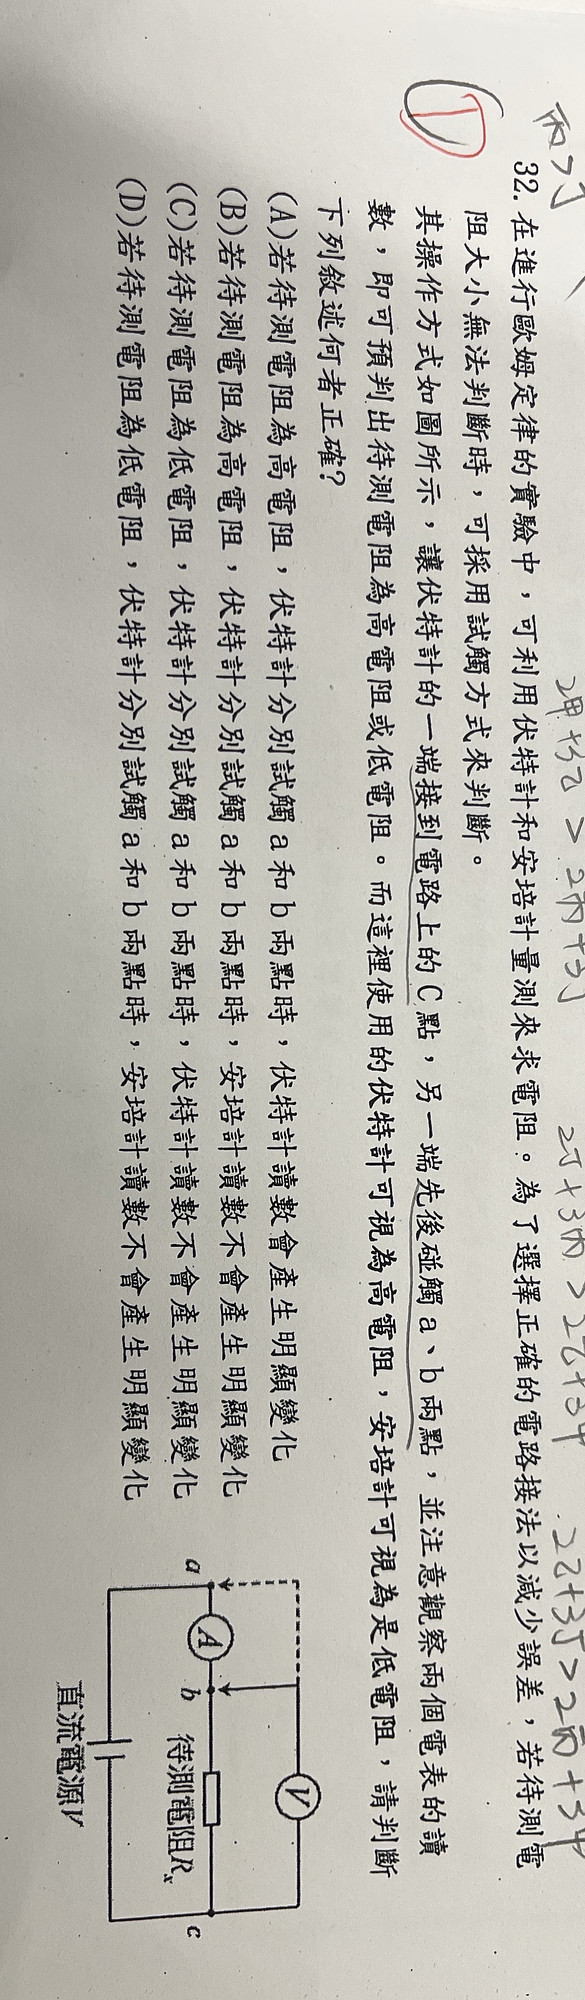 丙>丁
2甲+3乙>2丙+3丁
2丁+3丙>2乙+3甲
2乙+3丁>2丙+3甲
D
32. 在進行歐姆定律的實驗中，可利用伏特計和安培計量測來求電阻。為了選擇正確的電路接法以減少誤差，若待測電
阻大小無法判斷時，可採用試觸方式來判斷。
其操作方式如圖所示，讓伏特計的一端接到電路上的C點，另一端先後碰觸a、b兩點，並注意觀察兩個電表的讀
數，即可預判出待測電阻為高電阻或低電阻。而這裡使用的伏特計可視為高電阻，安培計可視為是低電阻，請判斷
下列敘述何者正確？
(A)若待測電阻為高電阻，伏特計分別試觸a和b兩點時，伏特計讀數會產生明顯變化
(B)若待測電阻為高電阻，伏特計分別試觸a和b兩點時，安培計讀數不會產生明顯變化
(C)若待測電阻為低電阻，伏特計分別試觸a和b兩點時，伏特計讀數不會產生明顯變化
(D)若待測電阻為低電阻，伏特計分別試觸a和b兩點時，安培計讀數不會產生明顯變化
V
a
A
b
待測電阻Rx
c
直流電源V